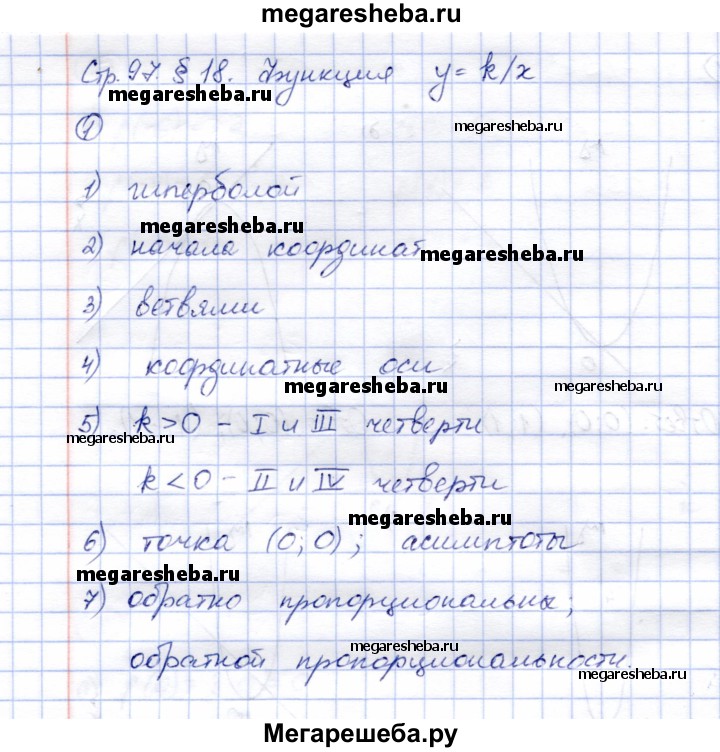 megaresheba.ru
Стр. 97. § 18. Функция y = k/x
megaresheba.ru
megaresheba.ru
1
1) гиперболой
megaresheba.ru
2) начала координат
megaresheba.ru
3) ветвями
4) координатные оси
megaresheba.ru
megaresheba.ru
5) k>0 – I и III четверти
megaresheba.ru
k<0 – II и IV четверти
megaresheba.ru
6) точка (0; 0); асимптоты
megaresheba.ru
7) обратно пропорциональны;
megaresheba.ru
обратной пропорциональности.
megaresheba.ru
Мегарешеба.ру